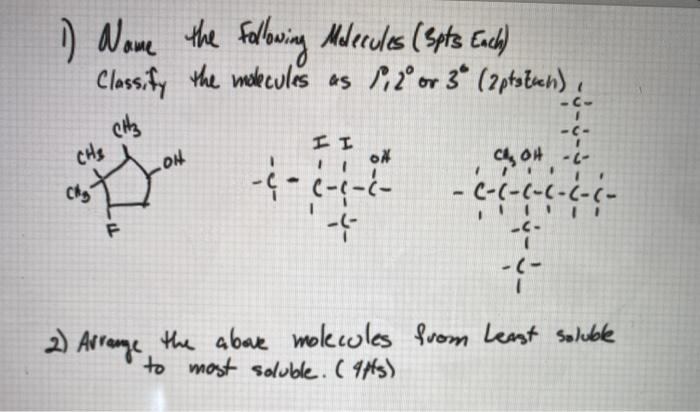 1) Name the Following Molecules (3pts Each)
Classify the molecules as 1°, 2° or 3° (2pts Each)
CH3
CH3
CH3
OH
F
I I
OH
-C-C-C-C-
-C-
-C-
-C-
-C-
CH3 OH
-C-C-C-C-C-C-
-C-
-C-
2) Arrange the above molecules from Least soluble
to most soluble. (4pts)